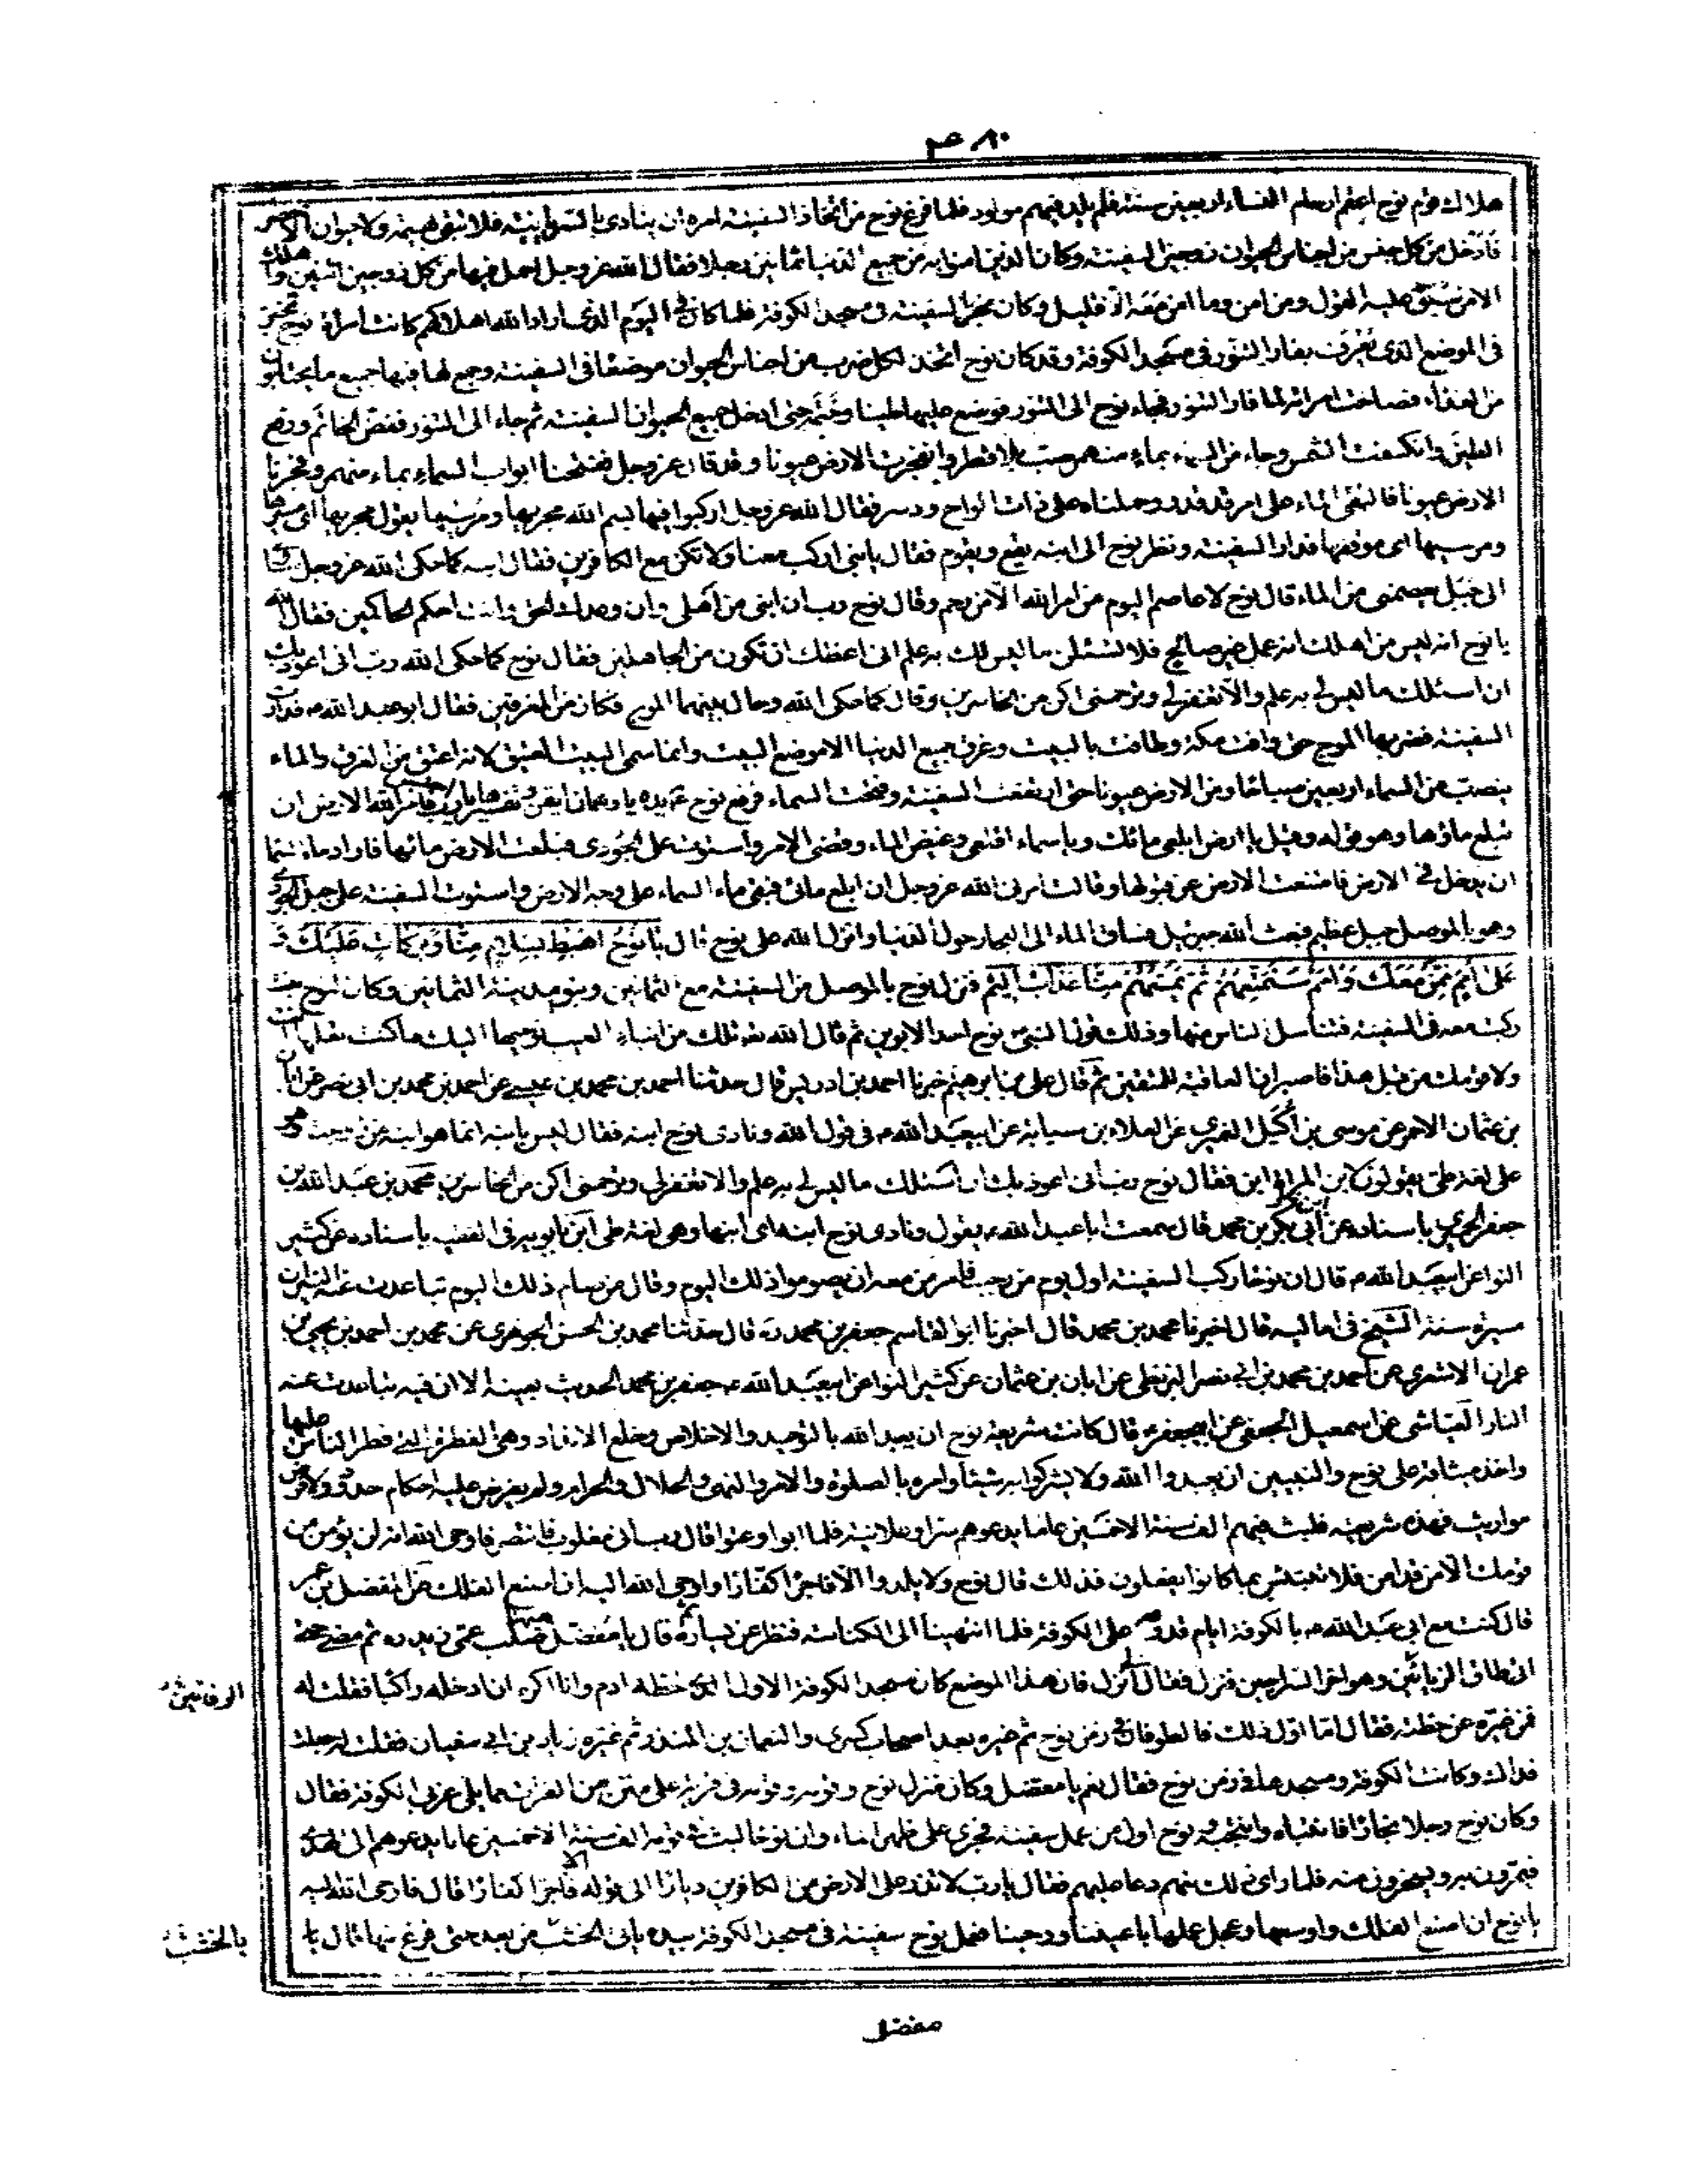 هلاك قوم نوح اعقم ارحام النساء اربعين سنة فلم يلد فيهم مولود فلما فرغ نوح من اتخاذ السفينة امره ان ينادى بالسريانية فلا تبقى بهيمة ولا حيوان الا حضر
فادخل من كل جنس من اجناس الحيوان زوجين السفينة وكان الذين امنوا به من جميع الدنيا ثمانين رجلا فقال الله عز وجل احمل فيها من كل زوجين اثنين واهلك
الا من سبق عليه القول ومن امن وما امن معه الا قليل وكان نجر السفينة فى مسجد الكوفة فلما كان فى اليوم الذى اراد الله اهلاكهم كانت امراة نوح تخبز
فى الموضع الذى يعرف بفار التنور فى مسجد الكوفة وقد كان نوح اتخذ لكل ضرب من اجناس الحيوان موضعا فى السفينة وجمع لها فيها جميع ما يحتاجون
من الغذاء فصاحت امراته لما فار التنور فجاء نوح الى التنور فوضع عليها طينا وختمه حتى ادخل جميع الحيوان السفينة ثم جاء الى التنور ففض الخاتم ورفع
الطين وانكسفت الشمس وجاء من السماء ماء منهمر صب بلا قطر وانفجرت الارض عيونا وقد قال عز وجل ففتحنا ابواب السماء بماء منهمر وفجرنا
الارض عيونا فالتقى الماء على امر قد قدر وحملناه على ذات الواح ودسر فقال الله عز وجل اركبوا فيها بسم الله مجريها ومرسيها يقول مجريها اى مسيرها
ومرسيها اى موقفها فدارت السفينة ونظر نوح الى ابنه يقع ويقوم فقال يا بنى اركب معنا ولا تكن مع الكافرين فقال ابنه كما حكى الله عز وجل ساوى
الى جبل يعصمنى من الماء قال نوح لا عاصم اليوم من امر الله الا من رحم وقال نوح رب ان ابنى من اهلى وان وعدك الحق وانت احكم الحاكمين فقال الله
يا نوح انه ليس من اهلك انه عمل غير صالح فلا تسئلن ما ليس لك به علم انى اعظك ان تكون من الجاهلين فقال نوح كما حكى الله رب انى اعوذ بك
ان اسئلك ما ليس لى به علم والا تغفر لى وترحمنى اكن من الخاسرين وقال كما حكى الله وحال بينهما الموج فكان من المغرقين فقال ابو عبد الله ع فدارت
السفينة فضربها الموج حتى وافت مكة وطافت بالبيت وغرق جميع الدنيا الا موضع البيت وانما سمى البيت العتيق لانه اعتق من الغرق والماء
ينصب من السماء اربعين صباحا ومن الارض عيونا حتى ارتفعت السفينة وفتحت السماء فرفع نوح يده يا رهمان اتقن تفسيرها يا رب احسن فامر الله الارض ان
تبلع ماؤها وهو قوله وقيل يا ارض ابلعى مائك ويا سماء اقلعى وغيض الماء وقضى الامر واستوت على الجودى فبلعت الارض مائها فاراد ماء السماء
ان يدخل فى الارض فامتنعت الارض عن قبولها وقالت امرنى الله عز وجل ان ابلع مائى فبقى ماء السماء على وجه الارض واستوت السفينة على جبل الجودى
وهو بالموصل جبل عظيم فبعث الله جبرئيل فساق الماء الى البحار حول الدنيا وانزل الله على نوح قال يا نوح اهبط بسلام منا وبركات عليك و
على امم ممن معك وامم سنمتعهم ثم يمسهم منا عذاب اليم فنزل نوح بالموصل من السفينة مع الثمانين وبنو مدينة الثمانين وكان لنوح بنت
ركبت معه فى السفينة فتناسل الناس منها وذلك قول النبى ص نوح احد الابوين ثم قال الله لنبيه تلك من انباء الغيب نوحيها اليك ما كنت تعلمها انت
ولا قومك من قبل هذا فاصبر ان العاقبة للمتقين ثم قال على بن ابرهيم اخبرنا احمد بن ادريس قال حدثنا احمد بن محمد بن عيسى عن احمد بن محمد بن ابى نصر عن ابان
بن عثمان الاحمر عن موسى بن اكيل النميرى عن العلاء بن سيابة عن ابيعبد الله ع فى قول الله ونادى نوح ابنه فقال ليس بابنه انما هو ابنه من زوجته وهو
على لغة طى يقولون لابن المراة ابن فقال نوح رب انى اعوذ بك ان اسئلك ما ليس لى به علم والا تغفر لى وترحمنى اكن من الخاسرين محمد بن عبد الله بن
جعفر الحميرى باسناده عن ابى بكر بن محمد قال سمعت ابا عبد الله ع يقول ونادى نوح ابنه اى ابنها وهى لغة طى ابن بابويه فى الفقيه باسناده عن كثير
النوا عن ابيعبد الله ع قال ان نوحا ركب السفينة اول يوم من رجب فامر من معه ان يصوموا ذلك اليوم وقال من صام ذلك اليوم تباعدت عنه النيران
مسيرة سنة الشيخ فى اماليه قال اخبرنا محمد بن محمد قال اخبرنا ابو القاسم جعفر بن محمد ره قال حدثنا محمد بن الحسن الجوهرى عن محمد بن احمد بن يحيى بن
عمران الاشعرى عن احمد بن محمد بن ابى نصر البزنطى عن ابان بن عثمان عن كثير النوا عن ابيعبد الله ع جعفر بن محمد الحديث بعينه الا ان فيه تباعدت عنه
النار العياشى عن اسمعيل الجعفى عن ابيجعفر ع قال كانت شريعة نوح ان يعبد الله بالتوحيد والاخلاص وخلع الانداد وهى الفطرة التى فطر الناس عليها
واخذ ميثاقه على نوح والنبيين ان يعبدوا الله ولا يشركوا به شيئا وامره بالصلوة والامر والنهى والحلال والحرام ولم يفرض عليه احكام حدود ولا فرض
مواريث فهذه شريعته فلبث فيهم الف سنة الا خمسين عاما يدعوهم سرا وعلانية فلما ابوا وعتوا قال رب انى مغلوب فانتصر فاوحى الله انه لن يؤمن من
قومك الا من قد امن فلا تبتئس بما كانوا يفعلون فذلك قال نوح ولا يلدوا الا فاجرا كفارا واوحى الله اليه ان اصنع الفلك عن المفضل بن عمر
قال كنت مع ابى عبد الله ع بالكوفة ايام قدومه على الكوفة فلما انتهينا الى الكناسة فنظر عن يساره ثم قال يا مفضل هيهنا صلب عمى زيد ره ثم مضى حتى
اتى طاق الزياتين وهو اخر السراجين فنزل فقال لى انزل فان هذا الموضع كان مسجد الكوفة الاول الذى خطه ادم وانا اكره ان ادخله راكبا فقلت له
فمن غيره عن خطته فقال اما اول ذلك فالطوفان فى زمن نوح ثم غيره بعد اصحاب كسرى والنعمان بن المنذر ثم غيره زياد بن ابى سفيان فقلت له جعلت
فداك وكانت الكوفة ومسجدها فى زمن نوح فقال نعم يا مفضل وكان منزل نوح وقومه فى قرية على متن من الفرات مما يلى غربى الكوفة فقال
وكان نوح رجلا نجارا فانتباه وانتجبه نوح اول من عمل سفينة تجرى على ظهر الماء وان نوحا لبث فى قومه الف سنة الا خمسين عاما يدعوهم الى الهدى
فيمرون به ويسخرون منه فلما راى ذلك منهم دعا عليهم فقال يا رب لا تذر على الارض من الكافرين ديارا الى قوله الا فاجرا كفارا قال فاوحى الله اليه
يا نوح ان اصنع الفلك واوسعها وعجل عملها باعيننا ووحينا فعمل نوح سفينة فى مسجد الكوفة بيده ياتى الخشب من بعد حتى فرغ منها قال يا
بالخشب
مفضل